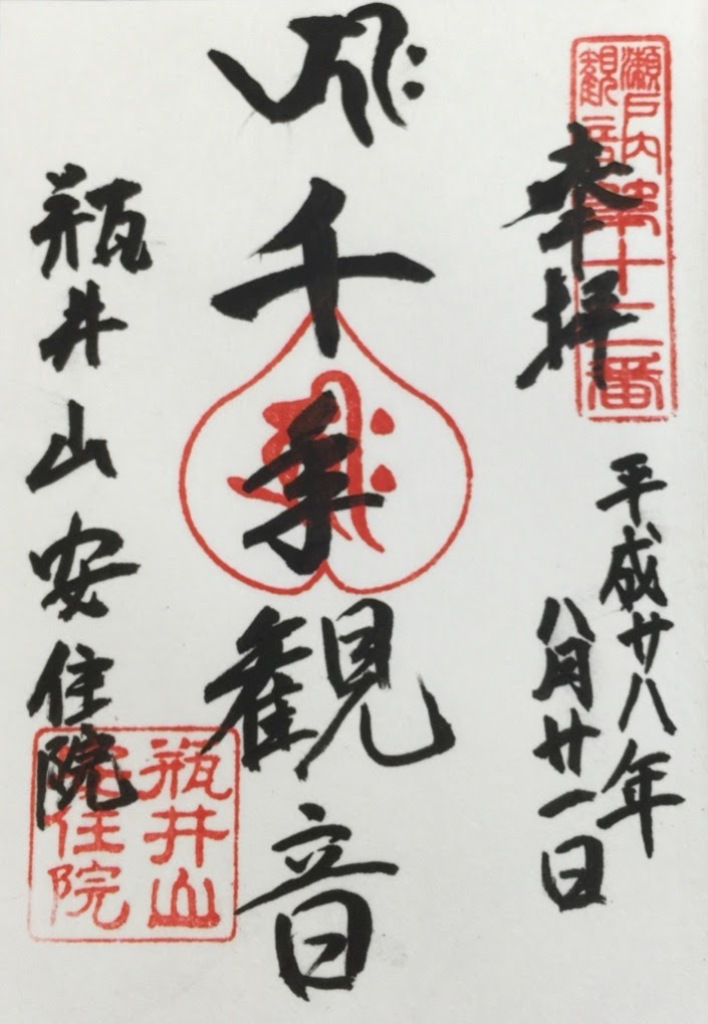 瀬戸内
観音第十二番
奉拝
平成廿八年
八月廿一日
千手観音
瓶井山安住院
瓶井山
安住院